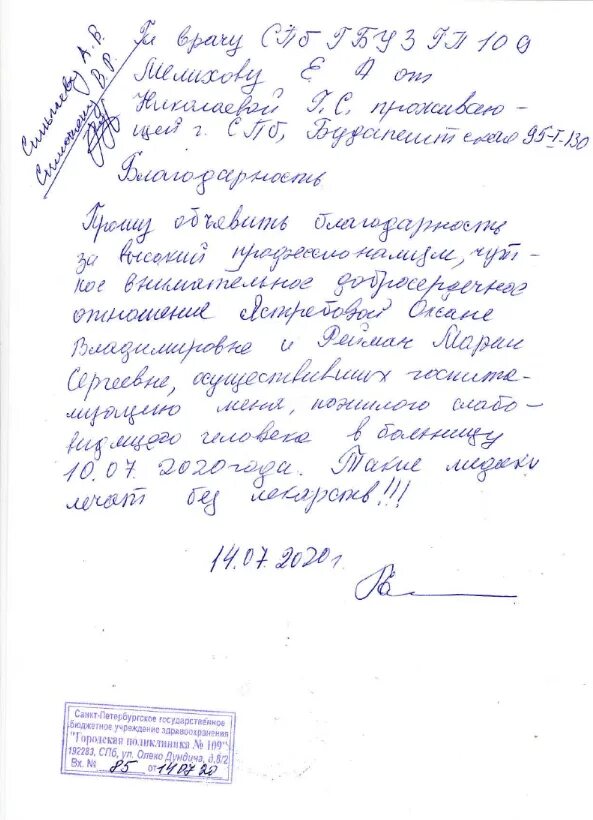 Гл врачу СПб ГБУЗ ГП 109
Мелихову Е А от
Николаевой Г. С, проживаю-
щей г. СПб, Будапештская 95-1-130
Благодарность
Прошу объявить благодарность
за высокий профессионализм, чут-
кое внимательное добросердечное
отношение Ястребовой Оксане
Владимировне и Рейман Марии
Сергеевне, осуществивших госпита-
лизацию меня, пожилого слабо-
видящего человека в больницу
10.07.2020года. Такие медики
лечат без лекарств!!!
14.07.2020г.
Санкт-Петербургское государственное
бюджетное учреждение здравоохранения
"Городская поликлиника № 109"
192283, СПб, ул. Олеко Дундича, д.8/2
Вх. № 85 от 14 07 20